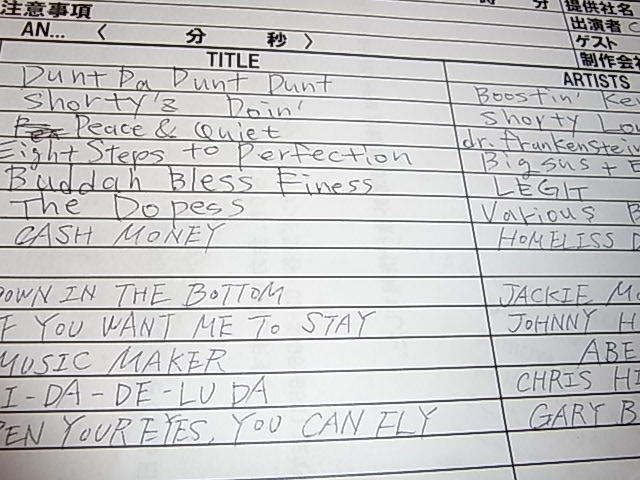 時 分 提供社名
注意事項 出演者
AN... 〈 分 秒 〉 ゲスト
TITLE 制作会
ARTISTS
Dunt Da Dunt Dunt Boostin' Ke
Shorty'z Doin' Shorty Lo
Peace & Quiet dr. frankenstein
Eight Steps to Perfection Big sus +
Buddah Bless Finess LEGIT
The Dopess Various B
CASH MONEY HOMELISS D
DOWN IN THE BOTTOM JACKIE MO
F YOU WANT ME TO STAY JOHNNY H
MUSIC MAKER ABE
I-DA-DE-LU DA CHRIS HI
PEN YOUR EYES, YOU CAN FLY GARY B